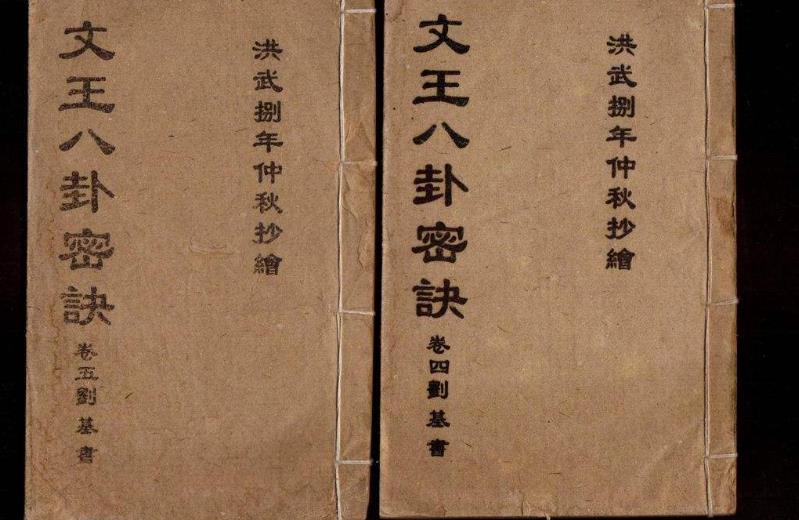 洪武捌年仲秋抄繪
文王八卦密訣 卷四劉基書
洪武捌年仲秋抄繪
文王八卦密訣 卷五劉基書